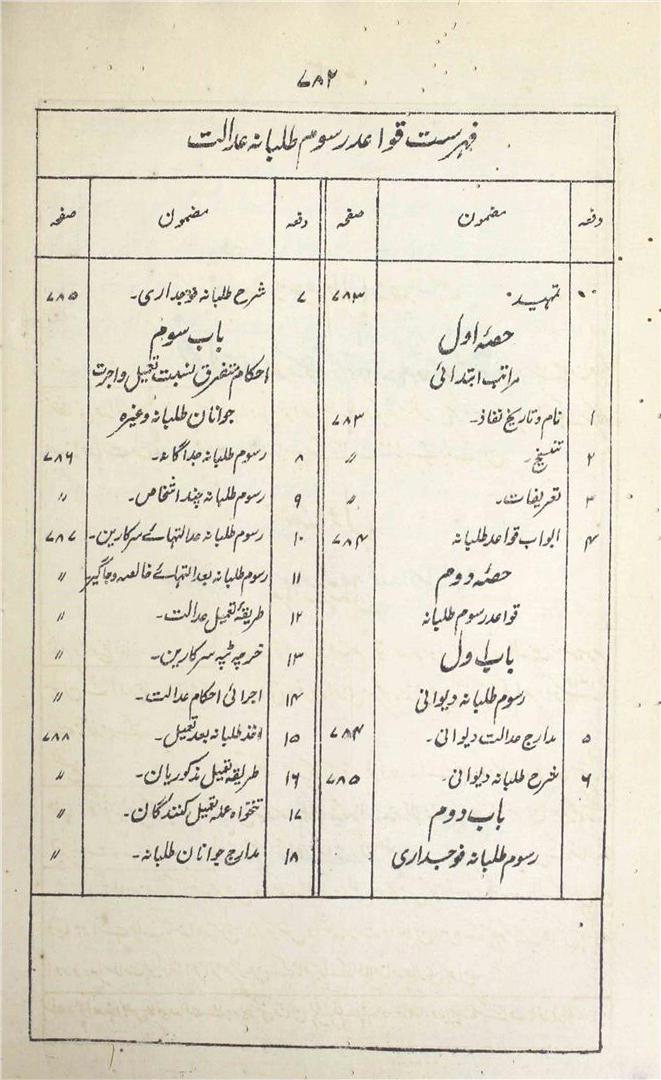 ۷۸۲
فہرست قواعد رسوم طلبانہ عدالت
دفعہ مضمون صفحہ
۰۰ تمہید ۷۸۳
حصۂ اول
مراتب ابتدائی
۱ نام و تاریخ نفاذ۔ ۷۸۳
۲ تنسیخ۔ 〃
۳ تعریفات۔ 〃
۴ ابواب قواعد طلبانہ ۷۸۴
حصۂ دوم
قواعد رسوم طلبانہ
باب اول
رسوم طلبانہ دیوانی
۵ مدارج عدالت دیوانی۔ ۷۸۴
۶ شرح طلبانہ دیوانی۔ ۷۸۵
باب دوم
رسوم طلبانہ فوجداری
دفعہ مضمون صفحہ
۷ شرح طلبانہ فوجداری۔ ۷۸۵
باب سوم
احکام متفرق بنسبت تعمیل و اجرت
جوانان طلبانہ وغیرہ
۸ رسوم طلبانہ جداگانہ۔ ۷۸۶
۹ رسوم طلبانہ چند اشخاص۔ 〃
۱۰ رسوم طلبانہ عدالتہائے سرکارین۔ ۷۸۷
۱۱ رسوم طلبانہ بعدالتہائے خالصہ و جاگیر 〃
۱۲ طریقۂ تعمیل عدالت۔ 〃
۱۳ خرچہ ٹپہ سرکارین۔ 〃
۱۴ اجرائی احکام عدالت۔ 〃
۱۵ اخذ طلبانہ بعد تعمیل۔ ۷۸۸
۱۶ طریقہ تعمیل مذکوریان۔ 〃
۱۷ تنخواہ عملہ تعمیل کنندگان۔ 〃
۱۸ مدارج جوانان طلبانہ۔ 〃